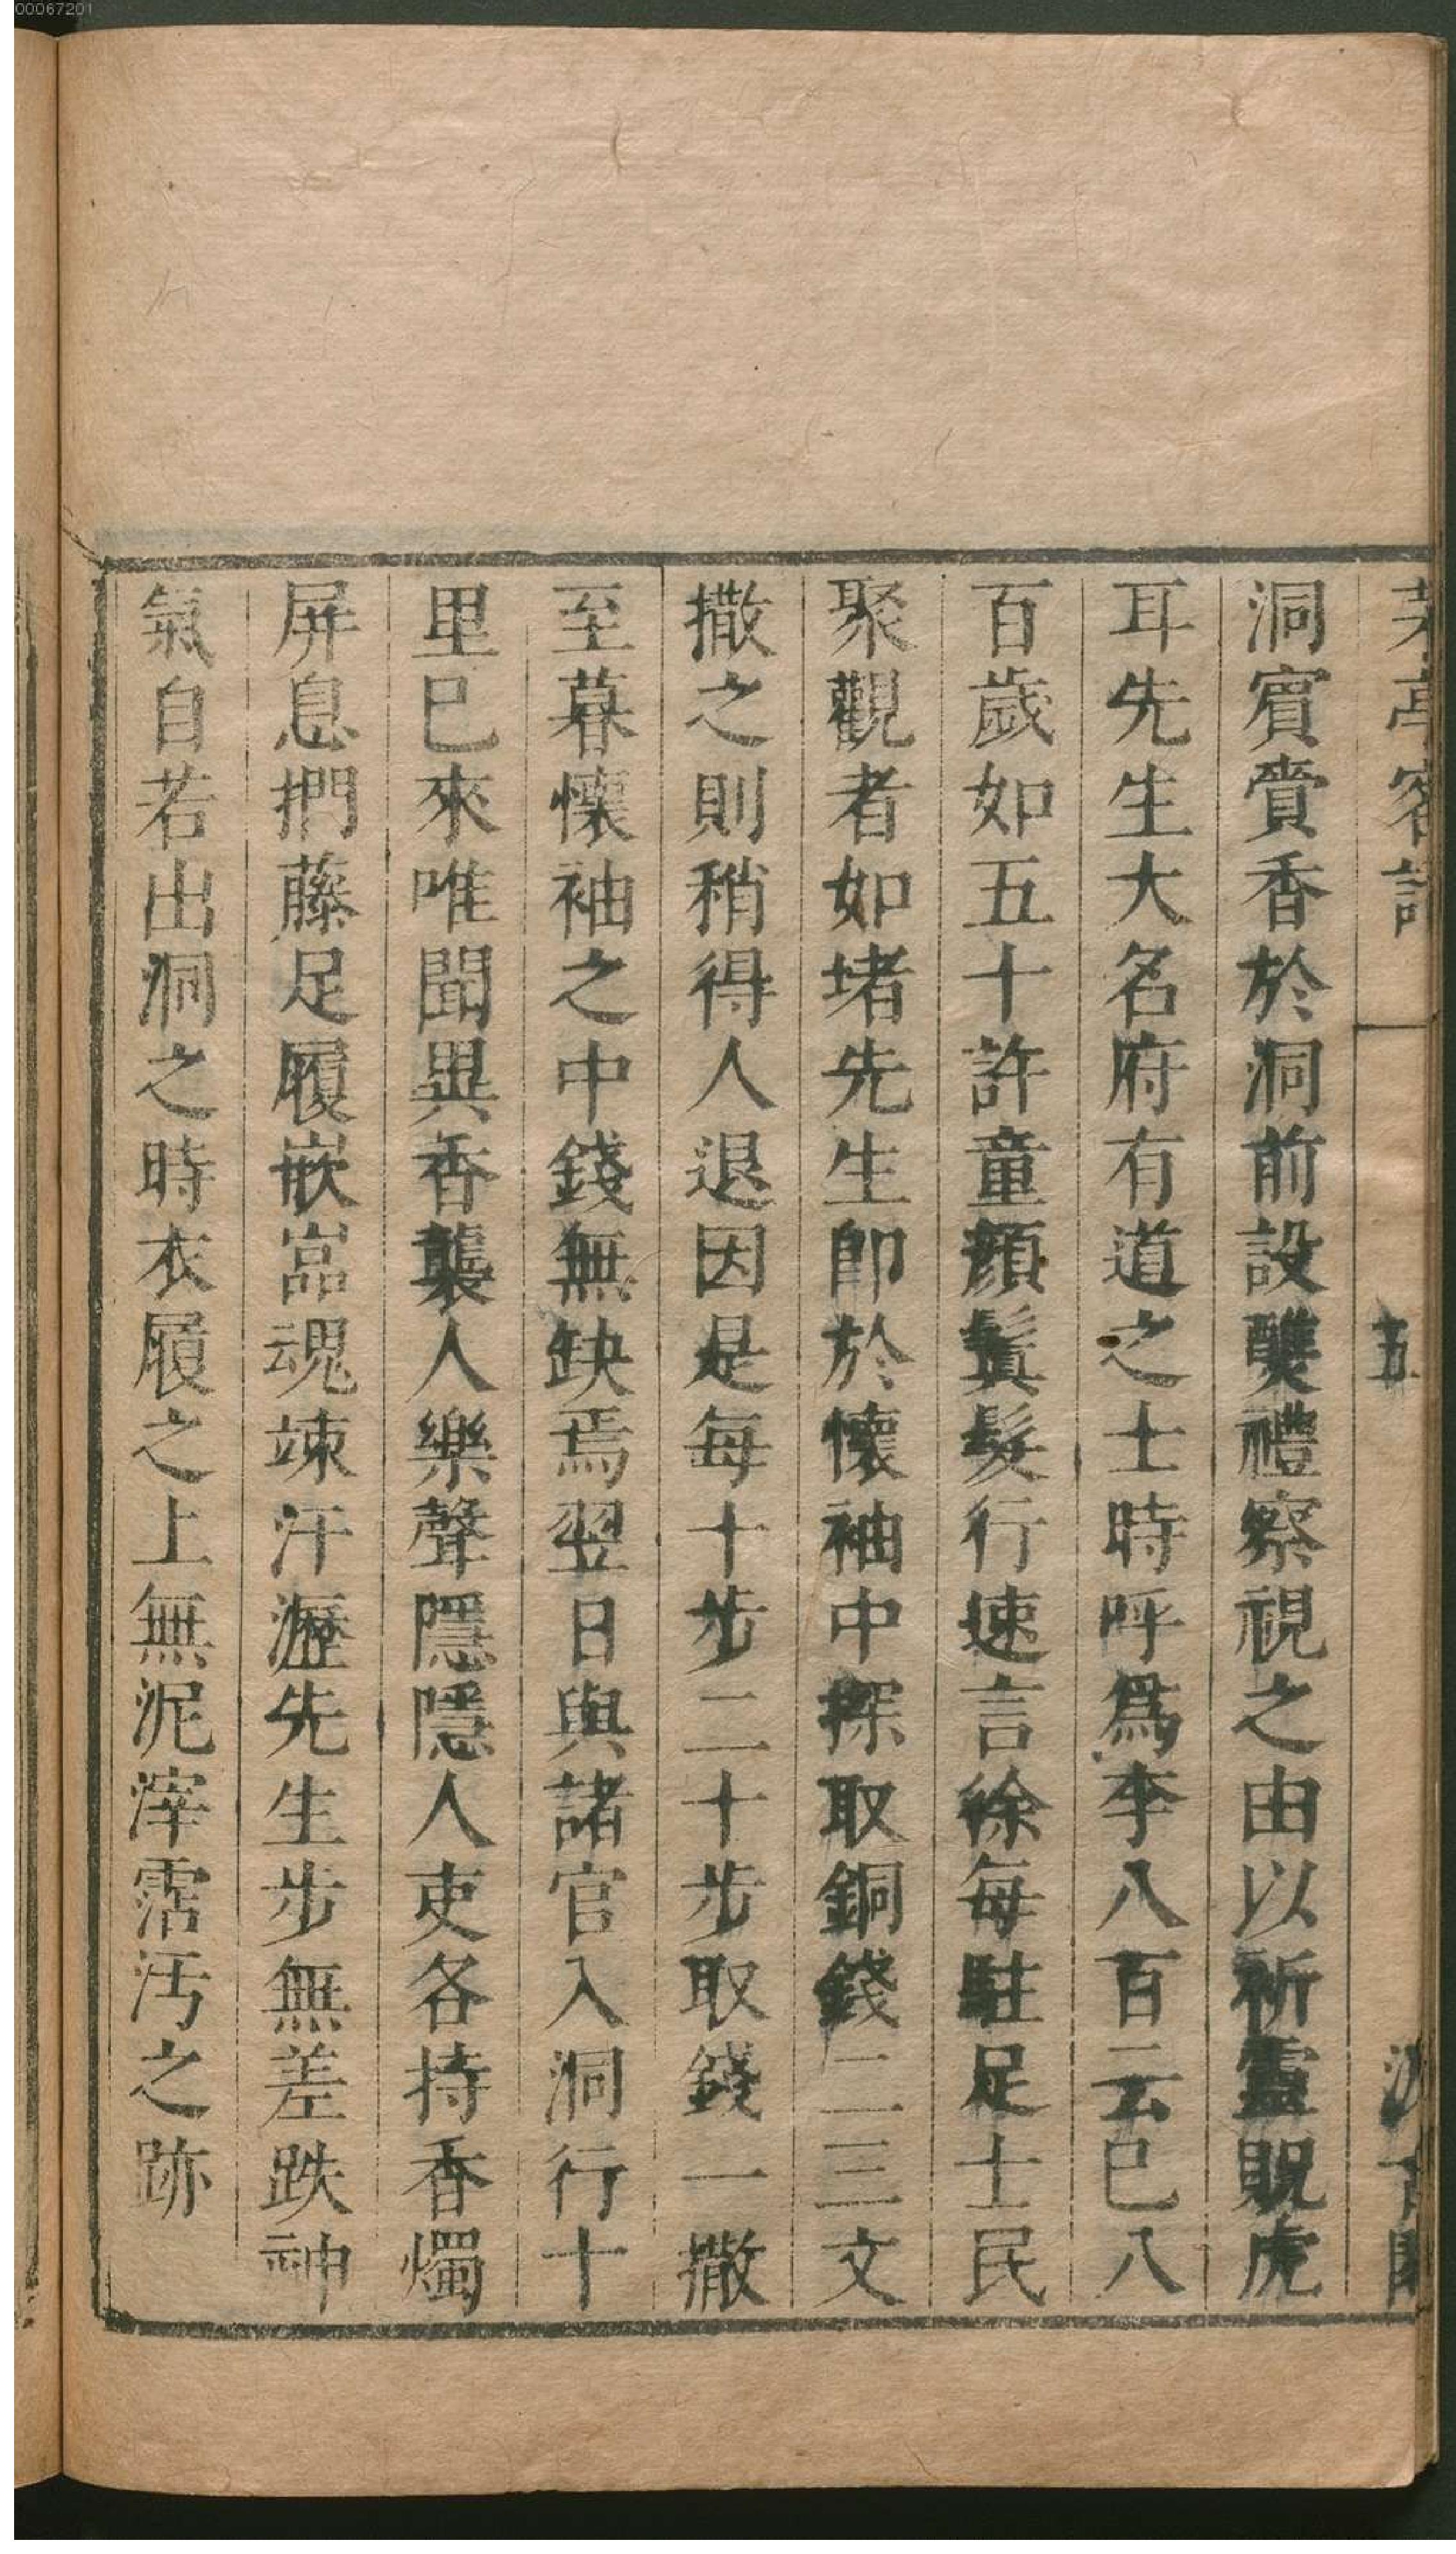 00067201
茅亭客話 五 汲古閣
洞賓賫香於洞前設醮禮察視之由以祈靈貺虎
耳先生大名府有道之士時呼爲李八百云巳八
百歲如五十許童顔鬒髮行速言徐每駐足士民
聚觀者如堵先生卽於懷袖中探取銅錢二三文
撒之則稍得人退因是每十步二十步取錢一撒
至暮懷袖之中錢無缺焉翌日與諸官入洞行十
里巳來唯聞異香襲人樂聲隱隱人吏各持香燭
屏息捫藤足履嵌嵓魂竦汗瀝先生步無差跌神
氣自若出洞之時衣履之上無泥滓霑汚之跡